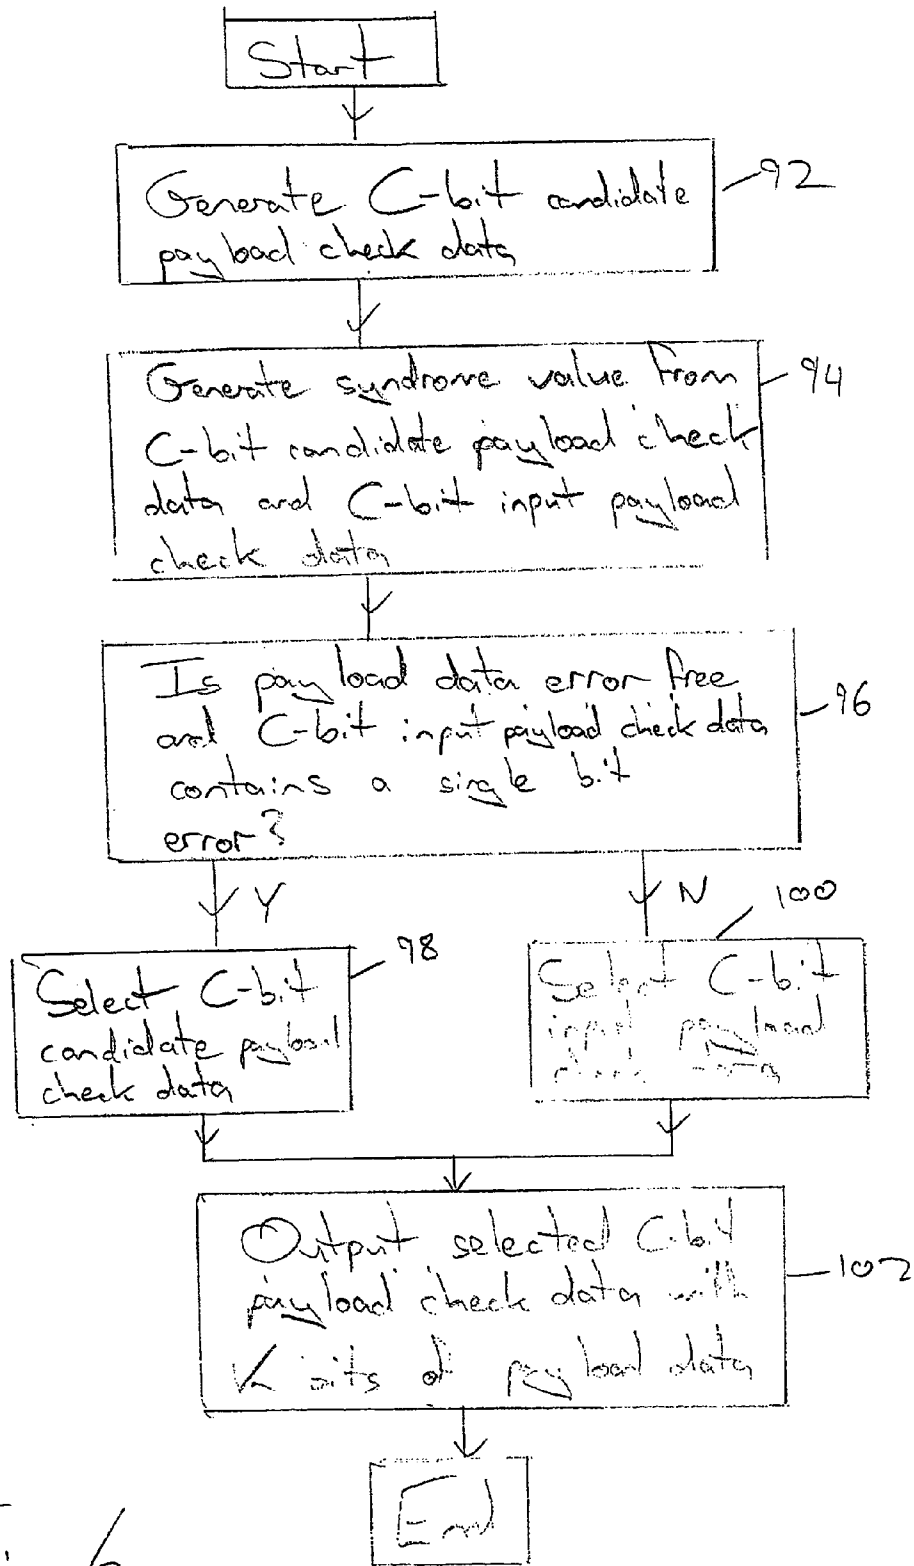 Start
Generate C-bit candidate
payload check data
92
Generate syndrome value from
C-bit candidate payload check
data and C-bit input payload
check data
94
Is payload data error free
and C-bit input payload check data
contains a single bit
error?
96
Y
N
Select C-bit
candidate payload
check data
98
Select C-bit
input payload
check data
100
Output selected C-bit
payload check data with
K bits of payload data
102
End
6